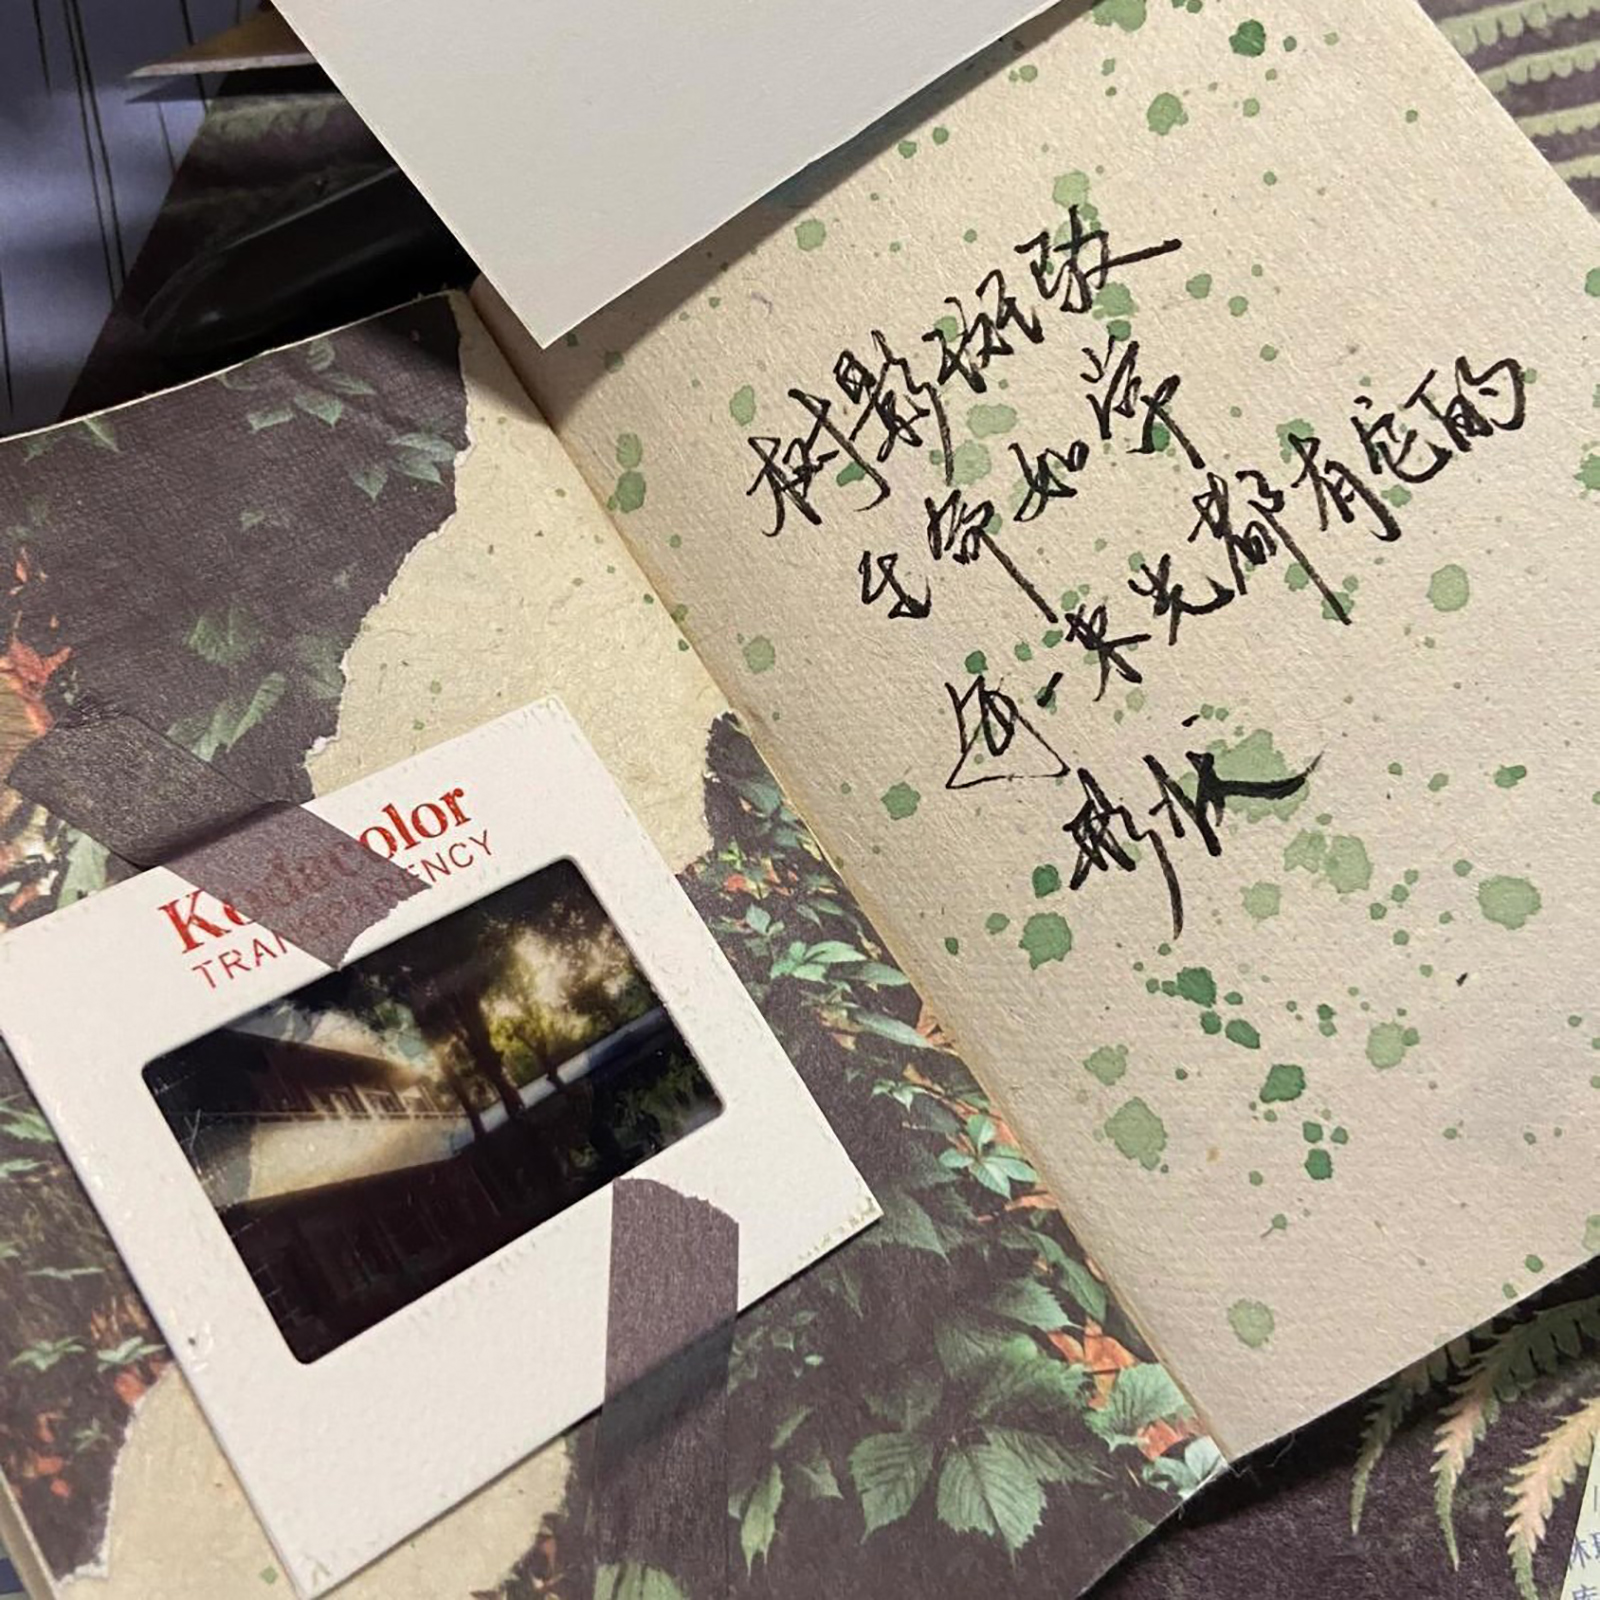 树影斑驳
生命如常
每一束光都有它的
形状
Kodacolor
TRANSPARENCY